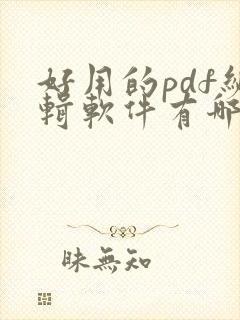 好用的pdf編
輯軟件有哪
昧無知